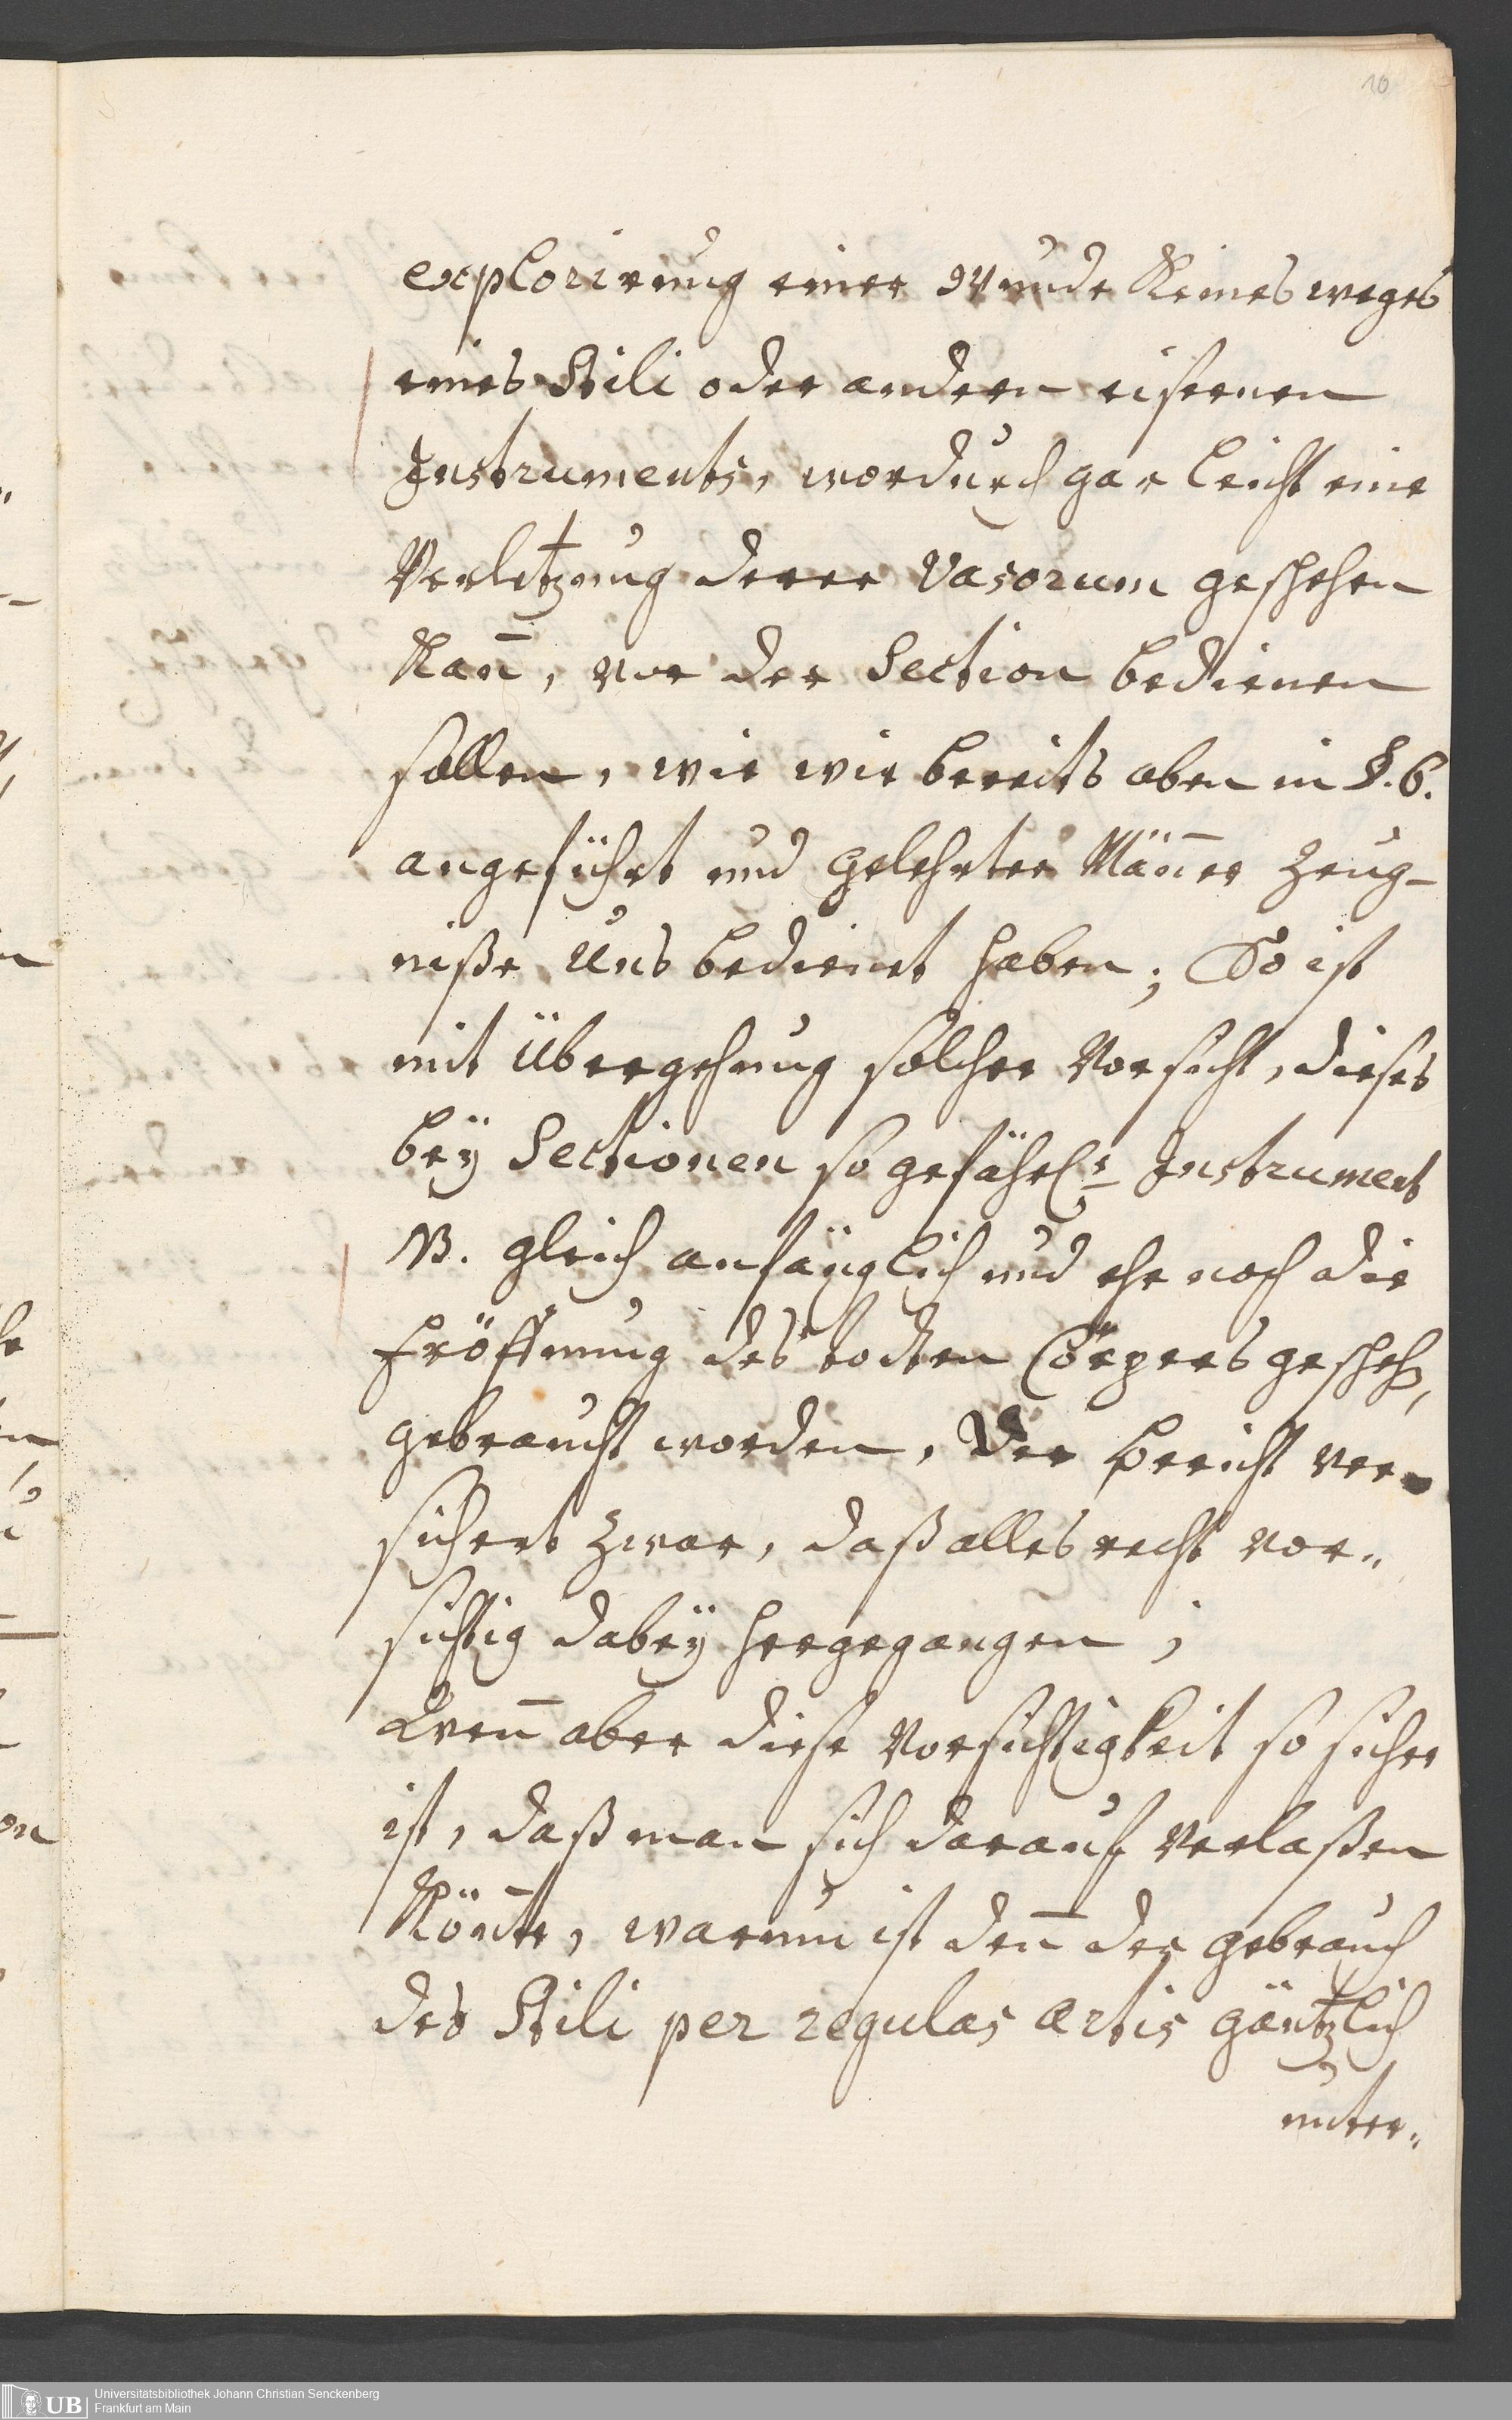 10
explorirung einer Wunde Keines weges
eines Stili oder andern eisernen
Instruments, wordurch gar leicht eine
Verletzung derer Vasorum geschehen
Kan̄, vor der Section bedienen
sollen, wie wir bereits oben in §. 6.
angeführt und gelehrter Män̄er Zeug-
niße Uns bedienet haben; So ist
mit Übergehung solcher Vorsicht, dieses
beÿ Sectionen so gefährl. Instrument
NB. gleich anfänglich und ehe noch die
Eröffnung des todten Cörpers gescheh,
gebraucht worden, Der Bericht ver-
sichert zwar, daß alles recht vor„
sichtig dabeÿ hergegangen;
Wen̄ aber diese Vorsichtigkeit so sicher
ist, daß man sich darauf verlaßen
Kön̄te, warum ist den̄ der gebrauch
des Stili per regulas artis gäntzlich
unter„
UB
Universitätsbibliothek Johann Christian Senckenberg
Frankfurt am Main